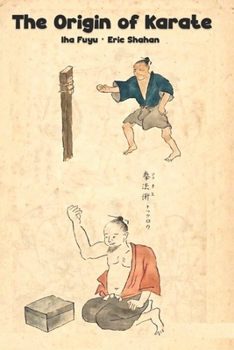 The Origin of Karate
Iha Fuyu · Eric Shahan
拳法術